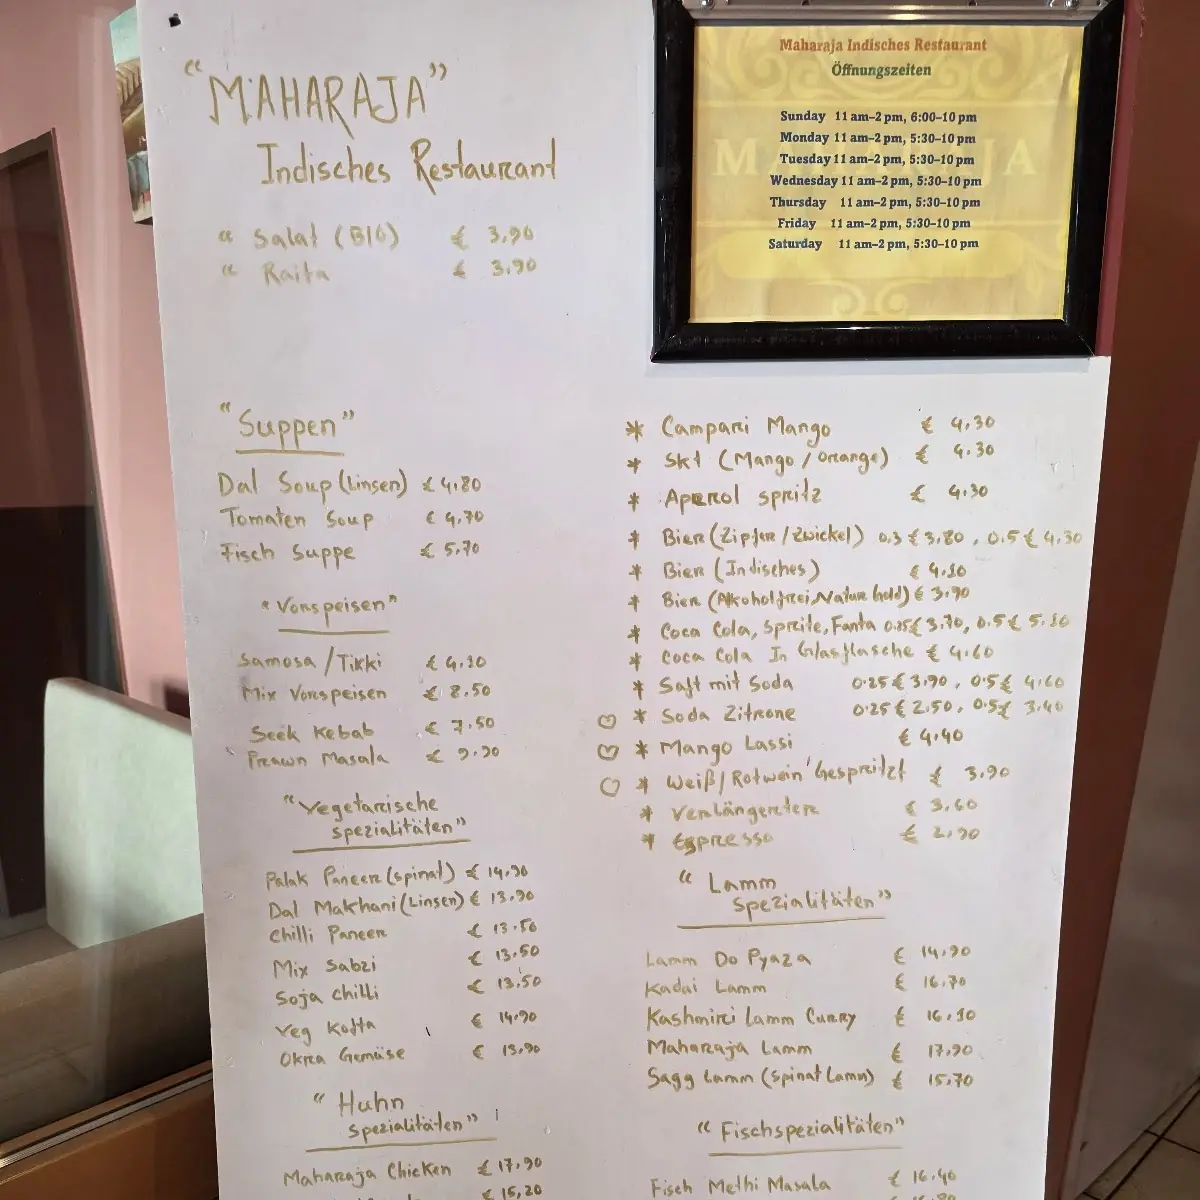 "MAHARAJA"
Indisches Restaurant
" Salat (BIG) € 3,90
" Raita € 3,90
Maharaja Indisches Restaurant
Öffnungszeiten
Sunday 11 am–2 pm, 6:00–10 pm
Monday 11 am–2 pm, 5:30–10 pm
Tuesday 11 am–2 pm, 5:30–10 pm
Wednesday 11 am–2 pm, 5:30–10 pm
Thursday 11 am–2 pm, 5:30–10 pm
Friday 11 am–2 pm, 5:30–10 pm
Saturday 11 am–2 pm, 5:30–10 pm
"Suppen"
Dal Soup (Linsen) € 4,80
Tomaten Soup € 4,70
Fisch Suppe € 5,70
"Vorspeisen"
Samosa / Tikki € 4,90
Mix Vorspeisen € 8,50
Seek Kebab € 7,50
Prawn Masala € 9,90
"Vegetarische
spezialitäten"
Palak Paneer (spinat) € 14,90
Dal Makhani (Linsen) € 13,90
Chilli Paneer € 13,50
Mix Sabzi € 13,50
Soja Chilli € 13,50
Veg Kofta € 14,90
Okra Gemüse € 13,90
"Huhn
spezialitäten"
Maharaja Chicken € 17,90
€ 15,20
* Campari Mango € 4,30
* Skt (Mango / Orange) € 4,30
* Aperol spritz € 4,30
* Bier (Zipfer / Zwickel) 0,3 € 3,80, 0,5 € 4,30
* Bier (Indisches) € 4,10
* Bier (Alkoholfrei, Natur Gold) € 3,90
* Coca Cola, Sprite, Fanta 0,25 € 3,70, 0,5 € 5,10
* Coca Cola In Glasflasche € 4,60
* Saft mit Soda 0.25 € 3,90, 0.5 € 4,60
* Soda Zitrone 0.25 € 2,50, 0.5 € 3,40
* Mango Lassi € 4,40
* Weiß/Rotwein Gespritzt € 3,90
* Verlängerter € 3,60
* Espresso € 2,90
"Lamm
spezialitäten"
Lamm Do Pyaza € 14,90
Kadai Lamm € 16,70
Kashmiri Lamm Curry € 16,90
Maharaja Lamm € 17,90
Sagg Lamm (spinat Lamm) € 15,70
"Fischspezialitäten"
Fisch Methi Masala € 16,40